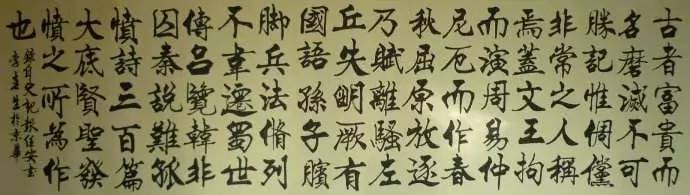 古者富貴而
名磨滅不可
勝記惟倜儻
非常之人稱
焉蓋文王拘
而演周易仲
尼厄而作春
秋屈原放逐
乃賦離騷左
丘失眀厥有
國語孫子臏
脚兵法脩列
不韋遷蜀世
傳吕覽韓非
囚秦說難孤
憤詩三百篇
大底賢聖發
憤之所為作
也
錄自史記報任安書
李於京華